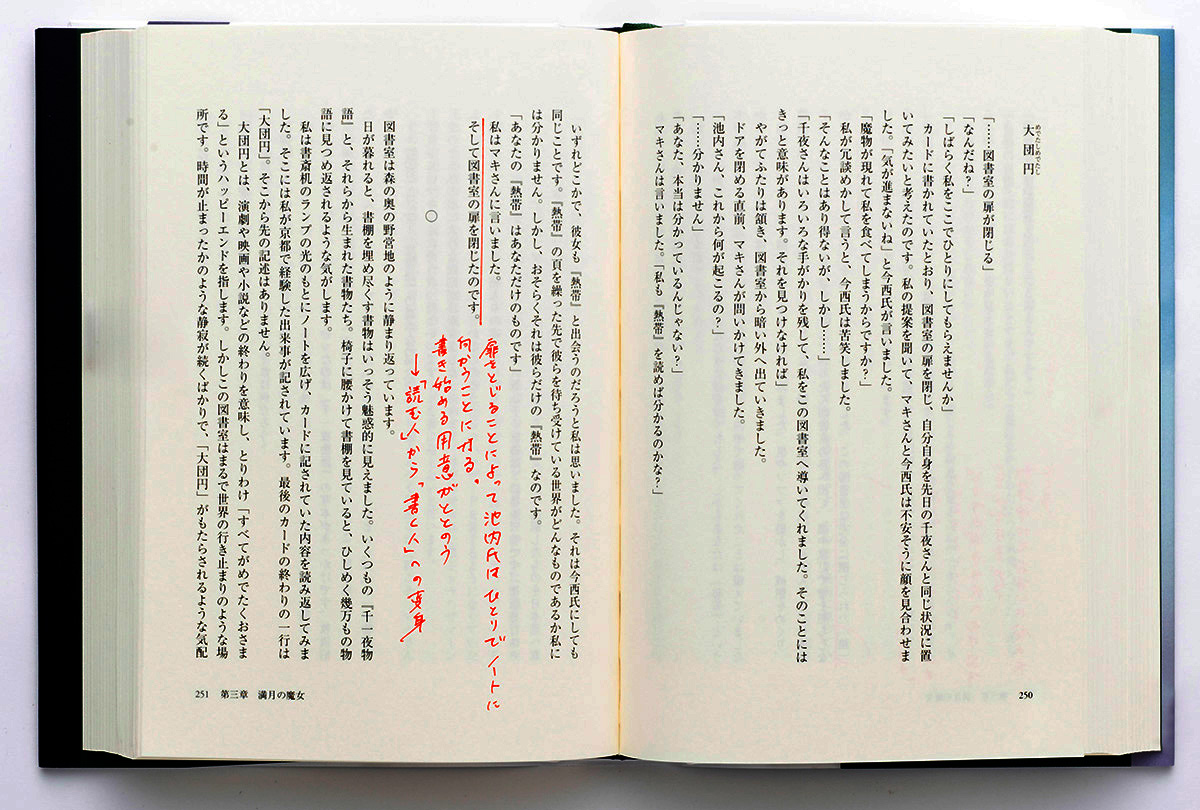 大団円
めでたしめでたし
「……図書室の扉が閉じる」
「なんだね？」
「しばらく私をここでひとりにしてもらえませんか」
カードに書かれていたとおり、図書室の扉を閉じ、自分自身を先日の千夜さんと同じ状況に置
いてみたいと考えたのです。私の提案を聞いて、マキさんと今西氏は不安そうに顔を見合わせま
した。「気が進まないね」と今西氏が言いました。
「魔物が現れて私を食べてしまうからですか？」
私が冗談めかして言うと、今西氏は苦笑しました。
「そんなことはあり得ないが、しかし……」
「千夜さんはいろいろな手がかりを残して、私をこの図書室へ導いてくれました。そのことには
きっと意味があります。それを見つけなければ」
やがてふたりは頷き、図書室から暗い外へ出ていきました。
ドアを閉める直前、マキさんが問いかけてきました。
「池内さん、これから何が起こるの？」
「……分かりません」
「あなた、本当は分かっているんじゃない？」
マキさんは言いました。「私も『熱帯』を読めば分かるのかな？」
250
いずれどこかで、彼女も『熱帯』と出会うのだろうと私は思いました。それは今西氏にしても
同じことです。『熱帯』の頁を繰った先で彼らを待ち受けている世界がどんなものであるか私に
は分かりません。しかし、おそらくそれは彼らだけの『熱帯』なのです。
「あなたの『熱帯』はあなただけのものです」
私はマキさんに言いました。
そして図書室の扉を閉じたのです。
扉をとじることによって池内氏はひとりでノートに
向かうことになる。
書き始める用意がととのう
→「読む人」から「書く人」への変身
○
図書室は森の奥の野営地のように静まり返っています。
日が暮れると、書棚を埋め尽くす書物はいっそう魅惑的に見えました。いくつもの『千一夜物
語』と、それらから生まれた書物たち。椅子に腰かけて書棚を見ていると、ひしめく幾万もの物
語に見つめ返されるような気がします。
私は書斎机のランプの光のもとにノートを広げ、カードに記されていた内容を読み返してみま
した。そこには私が京都で経験した出来事が記されています。最後のカードの終わりの一行は
「大団円」。そこから先の記述はありません。
大団円とは、演劇や映画や小説などの終わりを意味し、とりわけ「すべてがめでたくおさま
る」というハッピーエンドを指します。しかしこの図書室はまるで世界の行き止まりのような場
所です。時間が止まったかのような静寂が続くばかりで、「大団円」がもたらされるような気配
251 第三章 満月の魔女